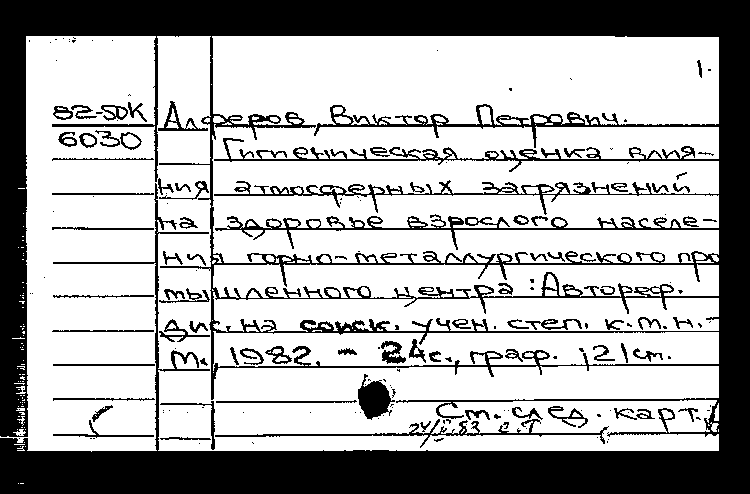 1.
82-50К Алферов, Виктор Петрович.
6030 Гигиеническая оценка влия-
ния атмосферных загрязнений
на здоровье взрослого населе-
ния горно-металлургического про
мышленного центра : Автореф.
дис. на соиск. учен. степ. к.м.н.-
М., 1982. - 24с., граф. ; 21см.
См. след. карт.